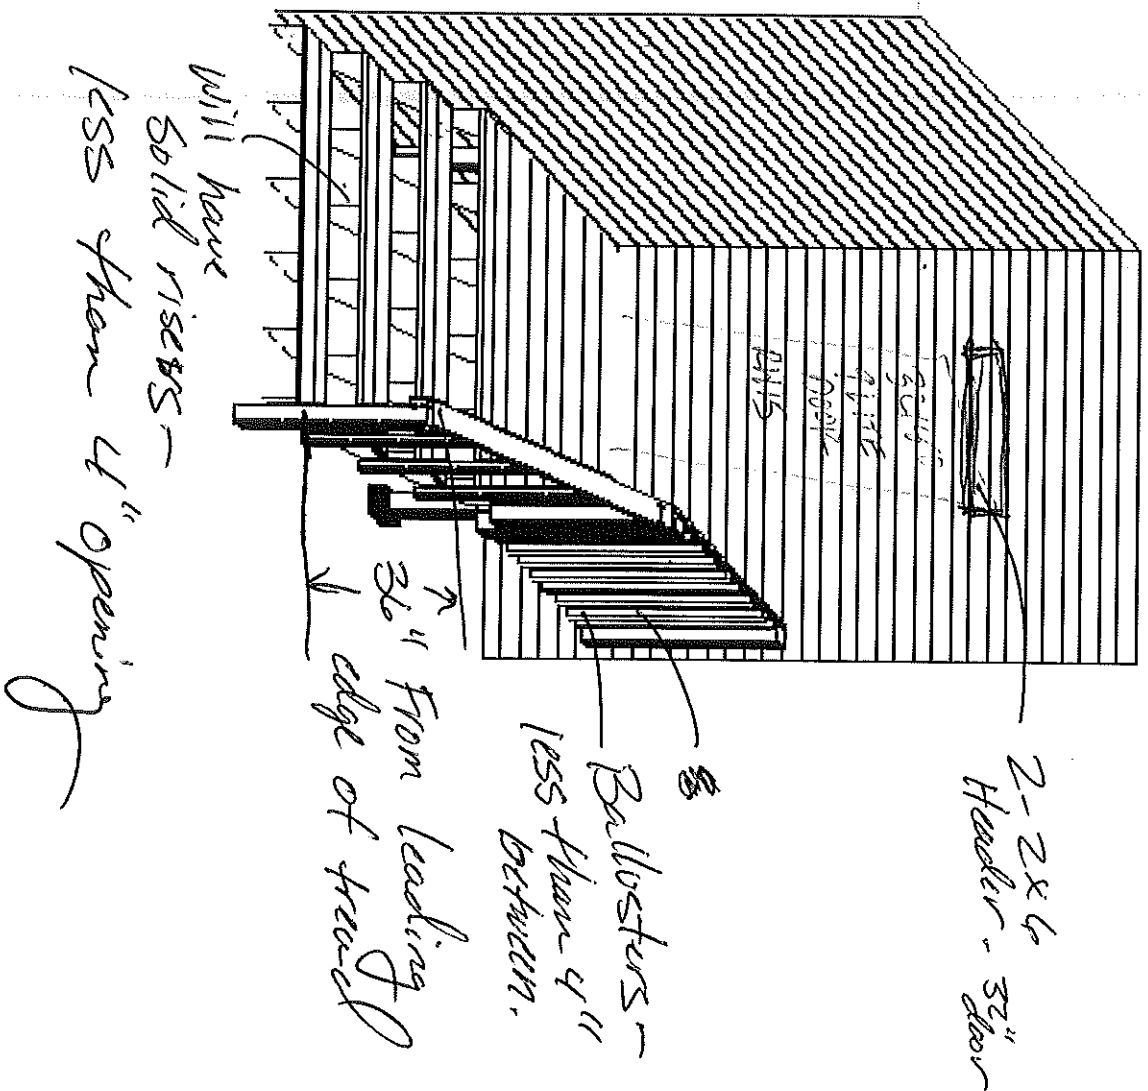 2-2x6
Header - 32"
door
Ballusters -
less than 4"
between.
36" From leading
edge of tread
Will have
Solid risers -
less than 4" opening